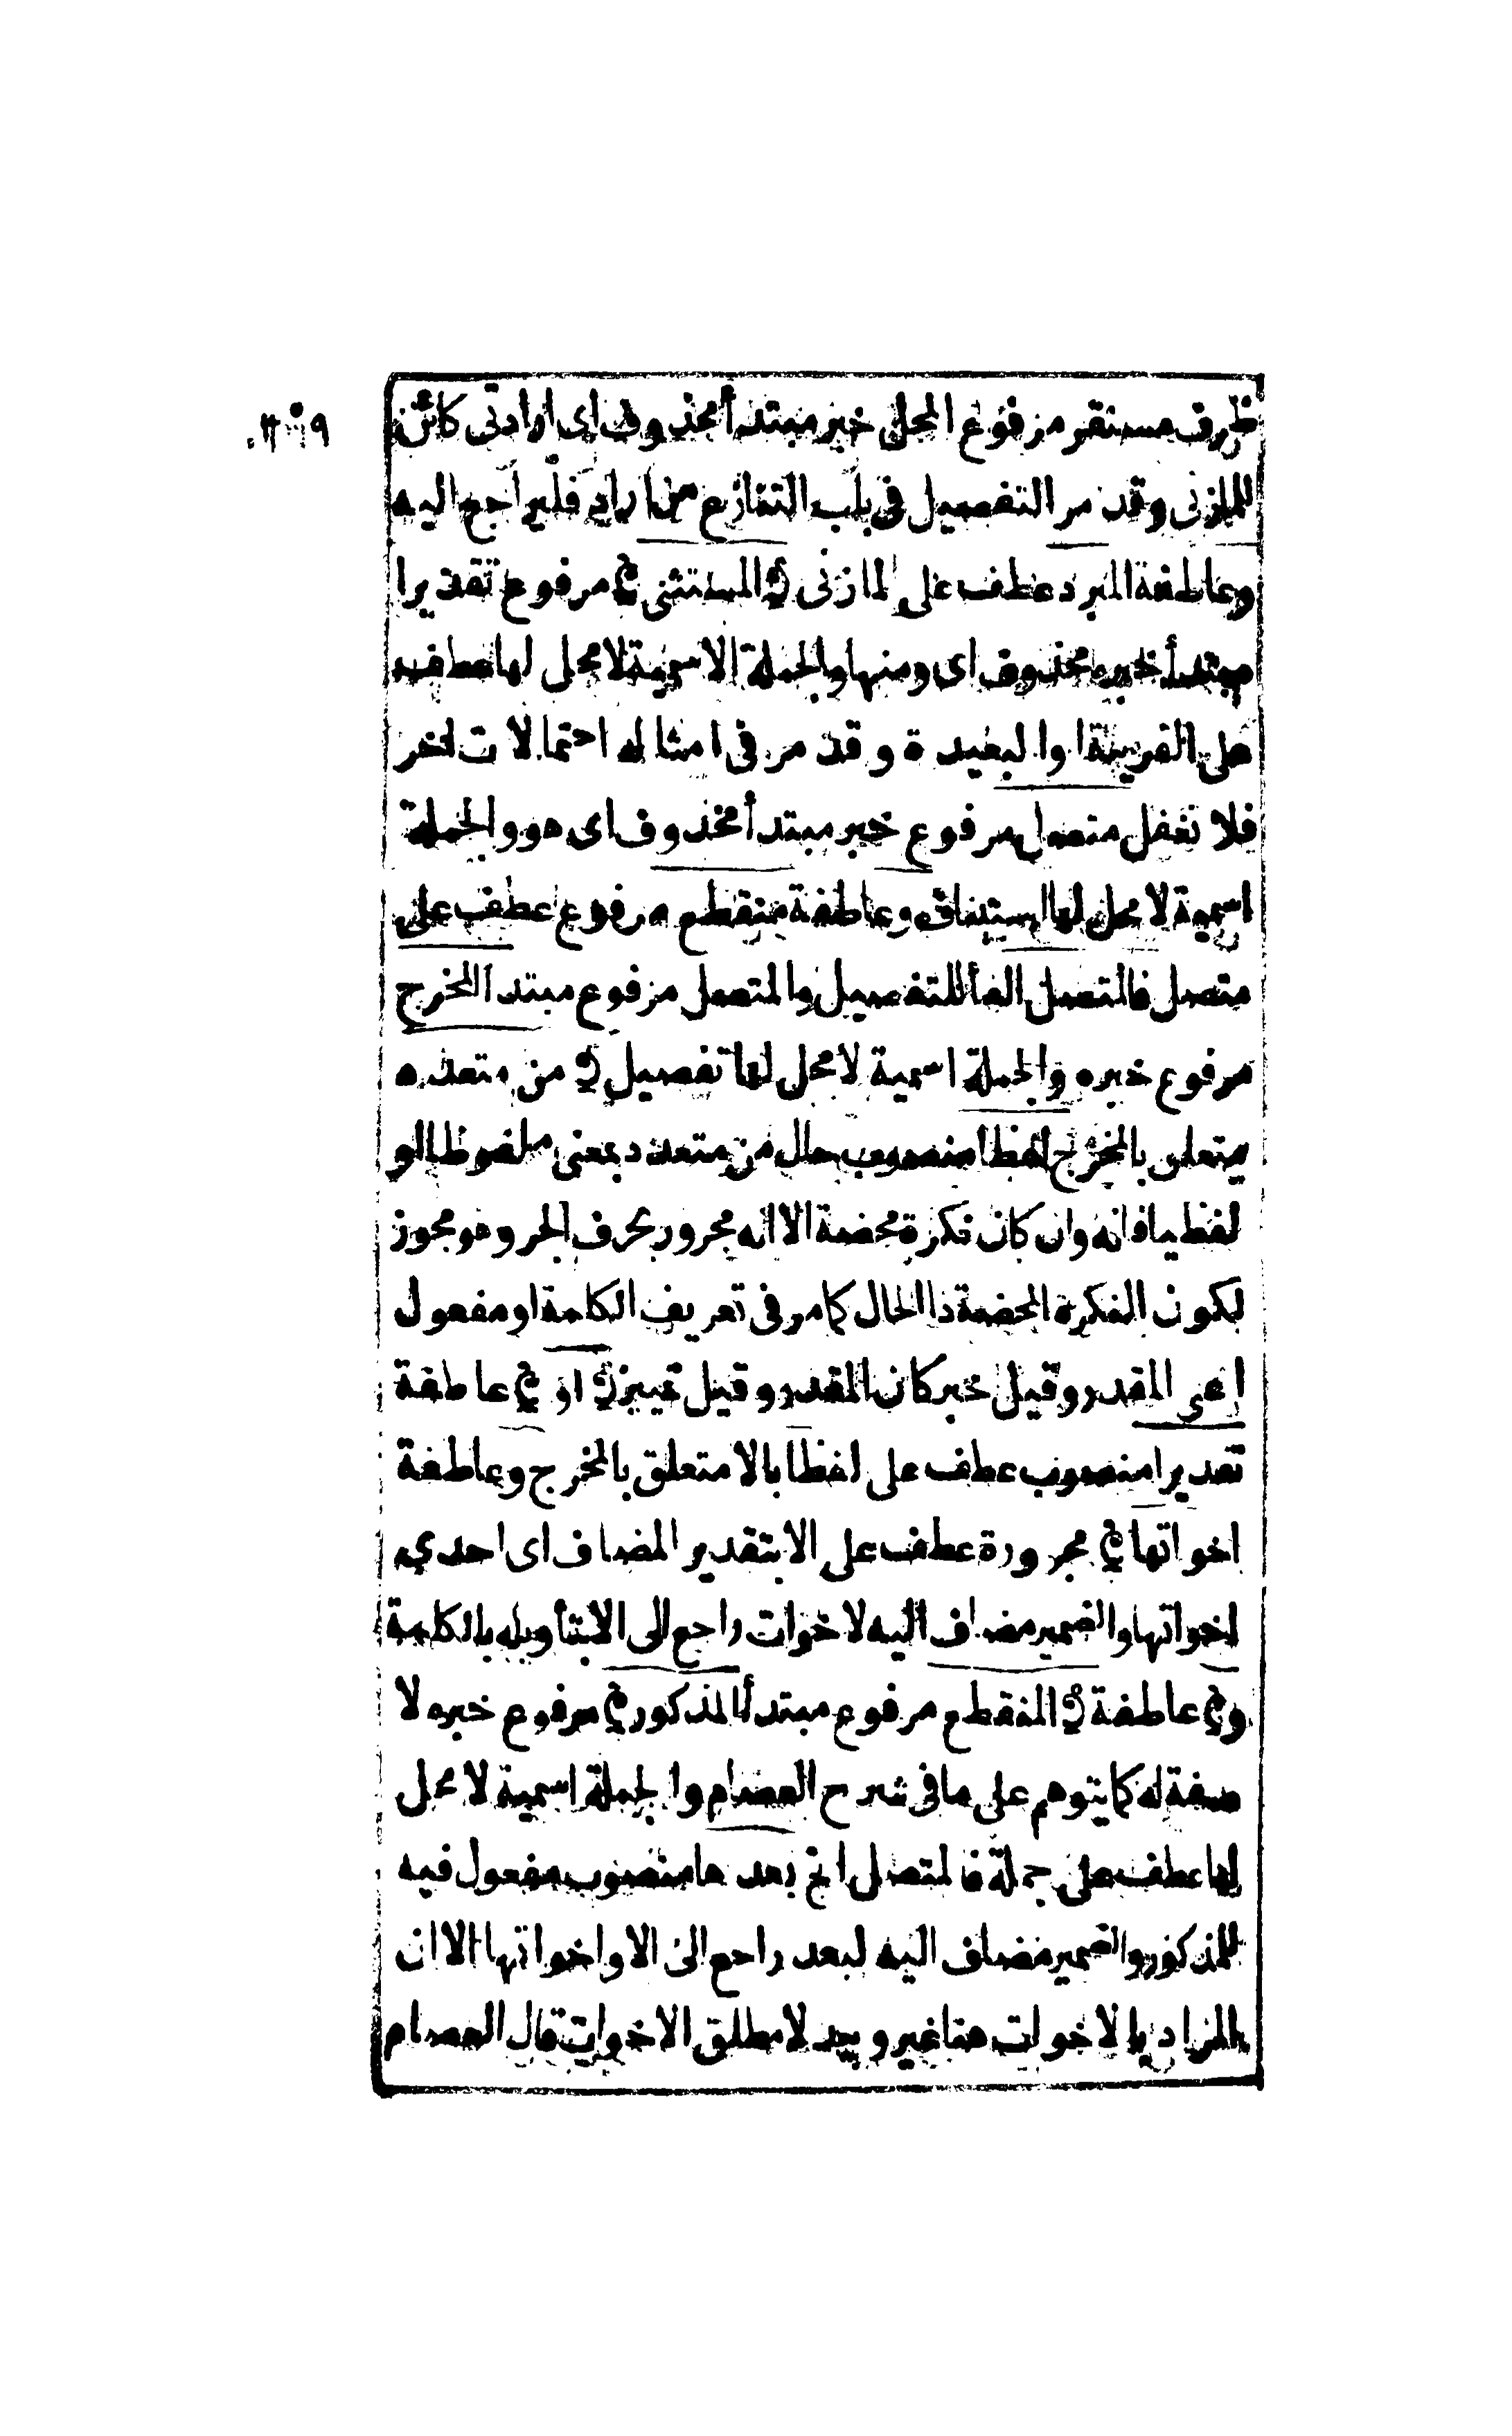 ظرف مستقر مرفوع المحل خبر مبتدأ محذوف اى ارادتى كائن
للمازنى وقد مر التفصيل فى باب التنازع من اراد فليراجع اليه
وعاطفة المبرد عطف على المازنى المستثنى مرفوع تقديرا
مبتدأ خبره محذوف اى ومنها والجملة الاسمية لا محل لها عطف
على القريبة او البعيدة وقد مر فى امثاله احتمالات اخر
فلا تغفل متصل مرفوع خبر مبتدأ محذوف اى هو والجملة
اسمية لا محل لها استيناف وعاطفة منقطع مرفوع عطف على
متصل فالمتصل الفا للتفصيل والمتصل مرفوع مبتدأ المخرج
مرفوع خبره والجملة اسمية لا محل لها تفصيل من متعدد
متعلق بالمخرج لفظا منصوب حال من متعدد بمعنى ملفوظا او
لفظيا فانه وان كان نكرة محضة الا انه مجرور بحرف الجر وهو مجوز
لكون النكرة المحضة ذا الحال كما مر فى تعريف الكلمة او مفعول
اعنى المقدر وقيل خبر كان المقدر وقيل تمييز او عاطفة
تقديرا منصوب عطف على لفظا بالا متعلق بالمخرج وعاطفة
اخواتها مجرورة عطف على الا بتقدير المضاف اى احدى
اخواتها والضمير مضاف اليه لاخوات راجع الى الا بتأويله بالكلمة
و عاطفة المنقطع مرفوع مبتدأ المذكور مرفوع خبره لا
صفة له كما يتوهم على ما فى شرح العصام والجملة اسمية لا محل
لها عطف على جملة فالمتصل الخ بعدها منصوب مفعول فيه
للمذكور والضمير مضاف اليه لبعد راجع الى الا واخواتها الا ان
المراد بالاخوات هنا غير وبيد لا مطلق الاخوات قال العصام